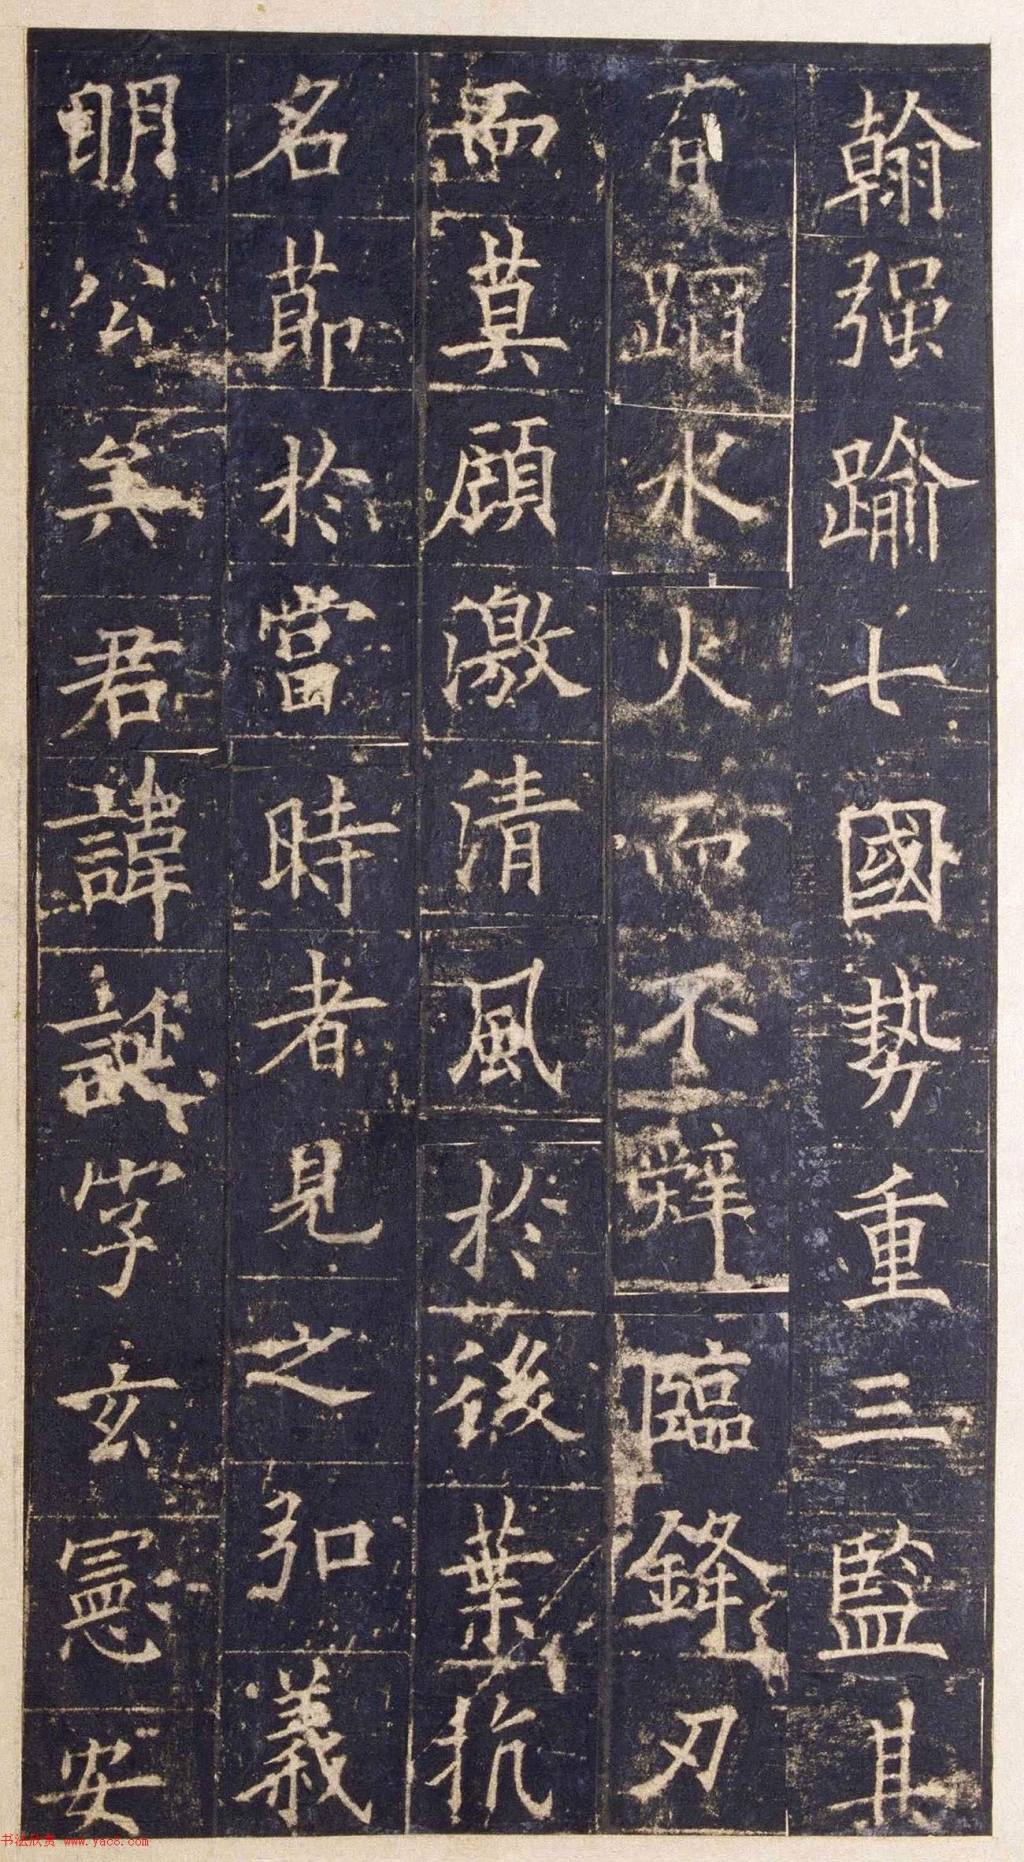 翰强踰七國勢重三監其
有蹈水火而不辭臨鋒刃
而莫顧激清風於後葉抗
名莭於當時者見之弘義
明公矣君諱誕字玄憲安
书法欣赏 www.yac8.com